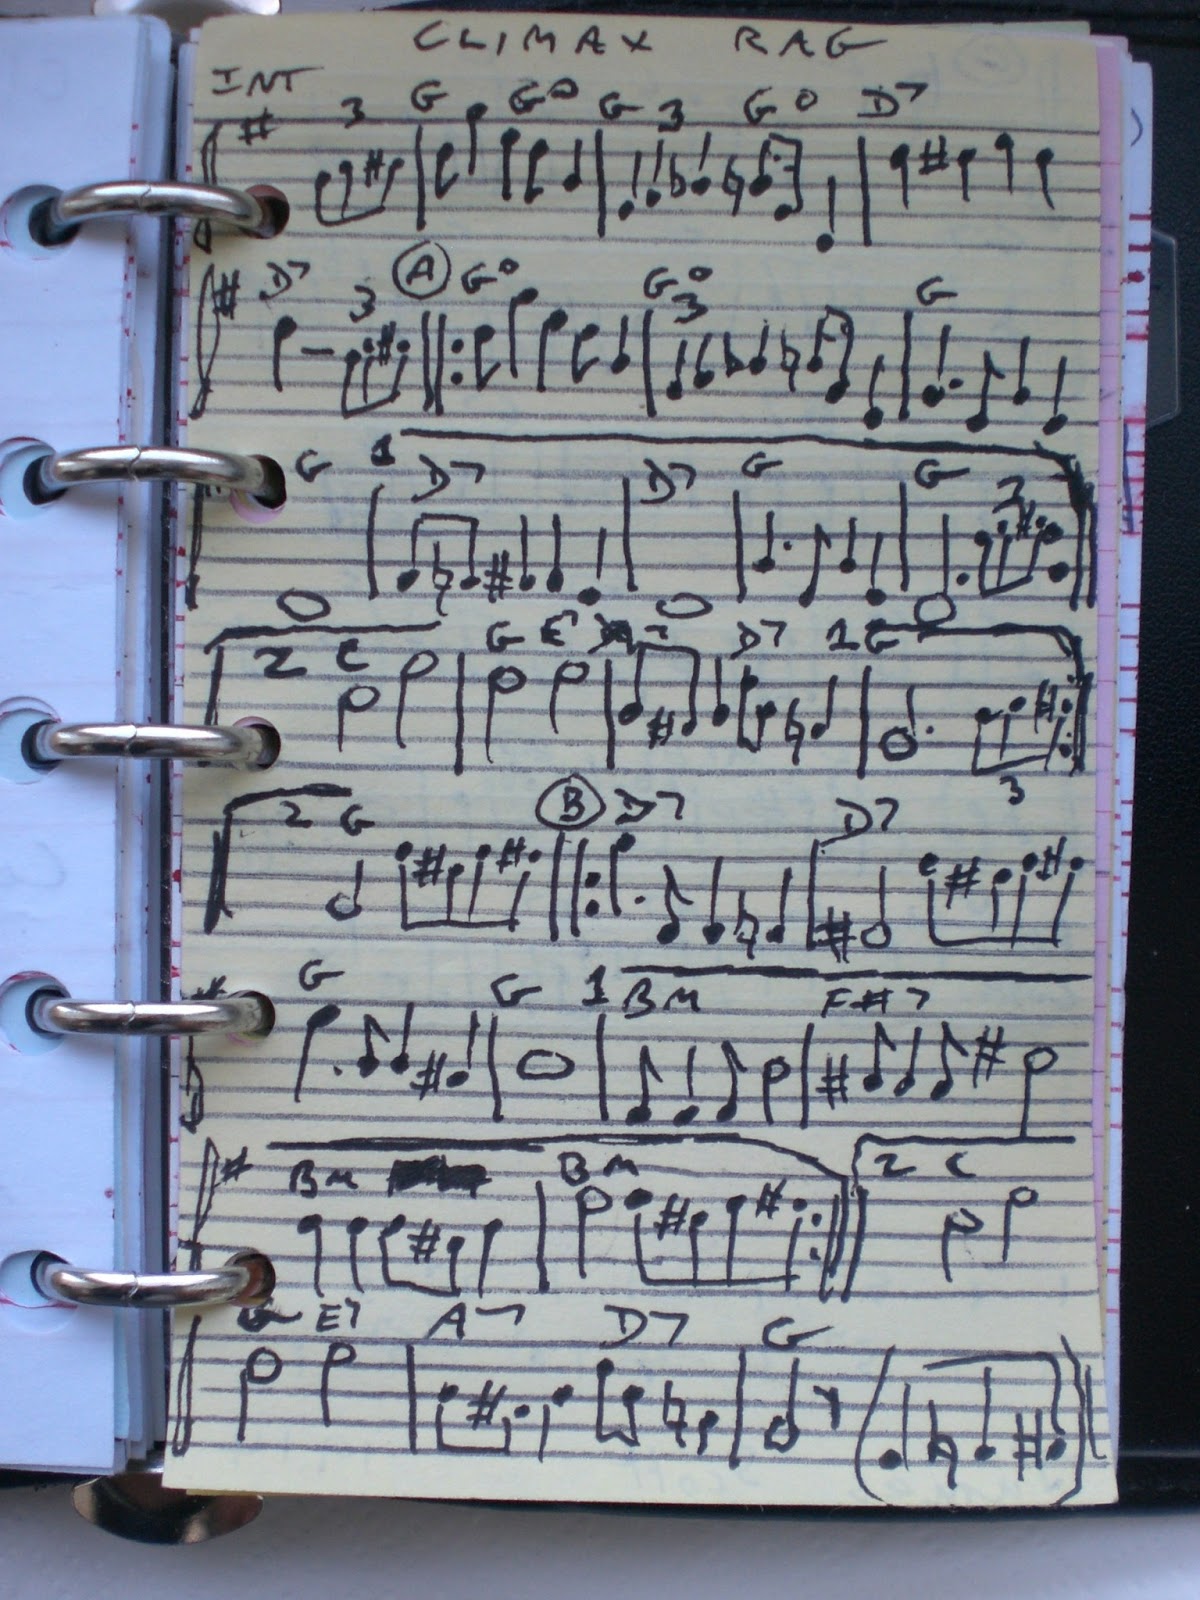 CLIMAX RAG
INT
3 G G° G 3 G° D7
D7 3 A G° G° 3 G
G 1 D7 D7 G G 3
2 C G E7 D7 1 G
3
2 G B D7 D7
G G 1 BM F#7
BM BM 2 C
G E7 A7 D7 G